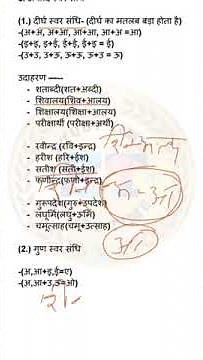 (1.) दीर्घ स्वर संधि- (दीर्घ का मतलब बड़ा होता है)
-(अ+अ, अ+आ, आ+आ, आ+अ =आ)
-(इ+इ, इ+ई, ई+ई, ई+इ = ई)
-(उ+उ, उ+ऊ, ऊ+ऊ, ऊ+उ = ऊ)
उदाहरण -----
- शताब्दी(शत+अब्दी)
- शिवालय(शिव+आलय)
- शिक्षालय(शिक्षा+आलय)
- परीक्षार्थी (परीक्षा+अर्थी)
- रवीन्द्र (रवि+इन्द्र)
- हरीश (हरि+ईश)
- सतीश (सती+ईश)
- फणीन्द्र(फणी+इन्द्र)
- गुरूपदेश(गुरु+उपदेश)
- लघूर्मि(लघु+ऊर्मि)
- चमूत्साह(चमू+उत्साह)
(2.) गुण स्वर संधि
-(अ,आ+इ,ई=ए)
-(अ,आ+उ,ऊ=ओ)